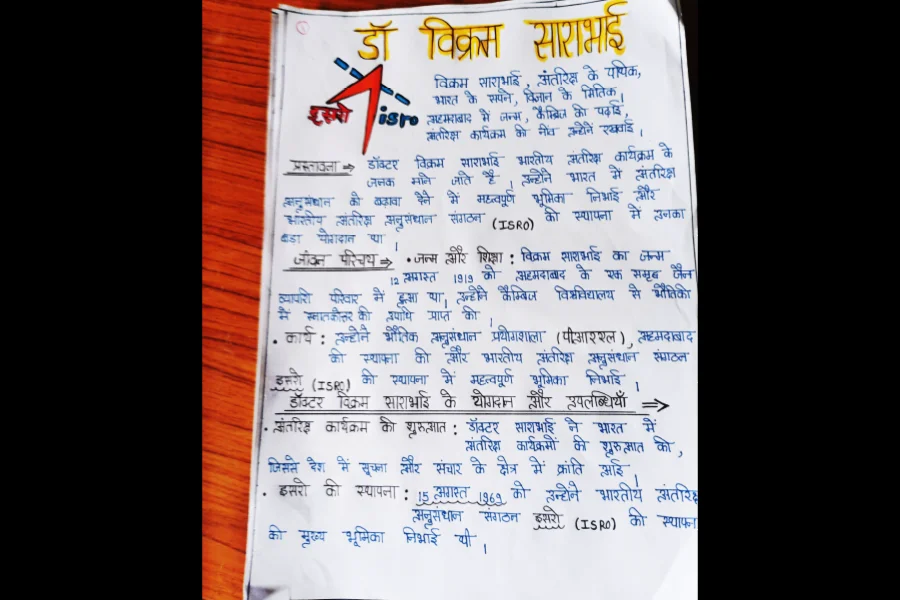 1
डॉ विक्रम साराभाई
इसरो isro
विक्रम साराभाई, अंतरिक्ष के पथिक,
भारत के सपने, विज्ञान के मितिक।
अहमदाबाद में जन्म, कैम्ब्रिज की पढ़ाई,
अंतरिक्ष कार्यक्रम की नींव उन्होंने रखवाई।
प्रस्तावना ⇒ डॉक्टर विक्रम साराभाई भारतीय अंतरिक्ष कार्यक्रम के
जनक माने जाते है। उन्होंने भारत में अंतरिक्ष
अनुसंधान को बढ़ावा देने में महत्वपूर्ण भूमिका निभाई और
भारतीय अंतरिक्ष अनुसंधान संगठन (ISRO) की स्थापना में उनका
बडा योगदान था।
जीवन परिचय ⇒ • जन्म और शिक्षा : विक्रम साराभाई का जन्म
12 अगस्त 1919 को अहमदाबाद के एक समृद्ध जैन
व्यापारी परिवार में हुआ था। उन्होंने कैम्ब्रिज विश्वविद्यालय से भौतिकी
में स्नातकोत्तर की उपाधि प्राप्त की।
• कार्य : उन्होंने भौतिक अनुसंधान प्रयोगशाला (पीआरएल), अहमदाबाद
की स्थापना की और भारतीय अंतरिक्ष अनुसंधान संगठन
इसरो (ISRO) की स्थापना में महत्वपूर्ण भूमिका निभाई।
डॉक्टर विक्रम साराभाई के योगदान और उपलब्धियाँ ⇒
• अंतरिक्ष कार्यक्रम की शुरुआत : डॉक्टर साराभाई ने भारत में
अंतरिक्ष कार्यक्रमों की शुरुआत की,
जिससे देश में सूचना और संचार के क्षेत्र में क्रांति आई।
• इसरो की स्थापना : 15 अगस्त 1969 को उन्होंने भारतीय अंतरिक्ष
अनुसंधान संगठन इसरो (ISRO) की स्थापना
की मुख्य भूमिका निभाई थी।